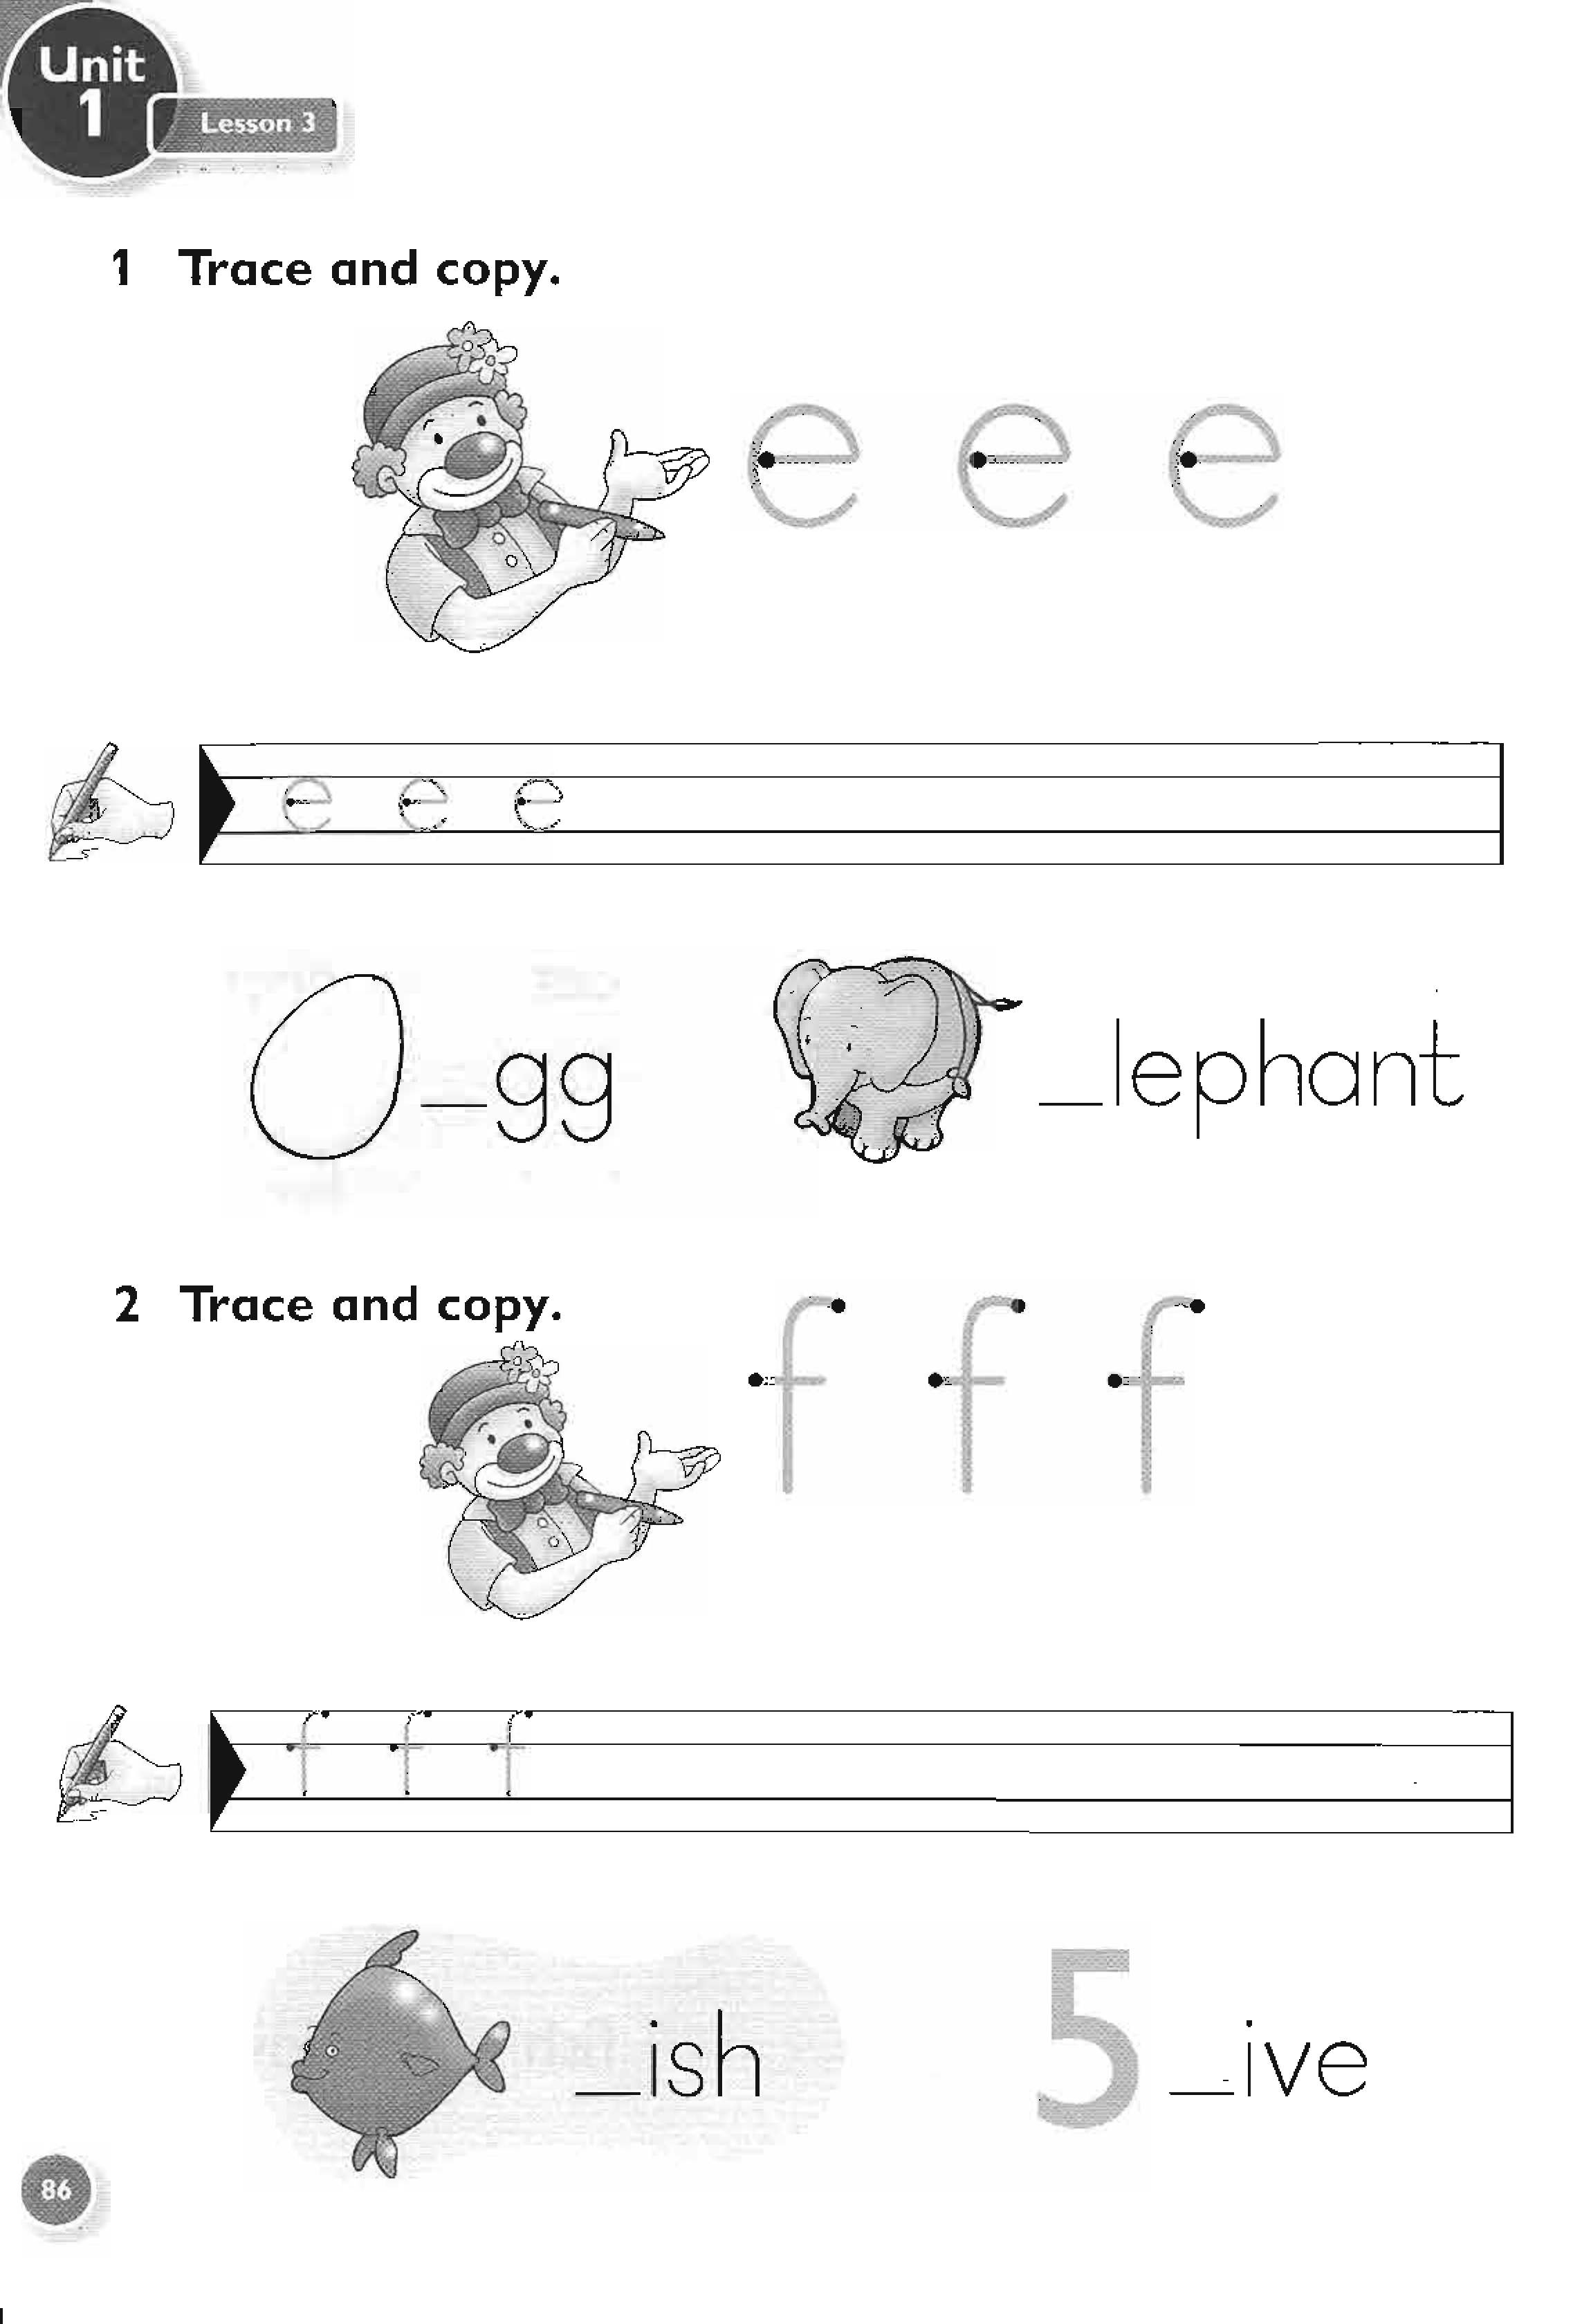 Unit
1
Lesson 3
1 Trace and copy.
e e e
e e e
_gg
_lephant
2 Trace and copy.
f f f
f f f
_ish
5 _ive
86